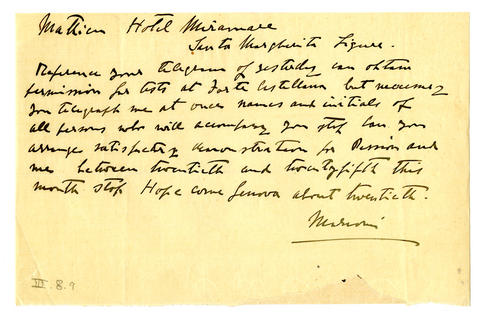 Mathieu Hotel Miramare
Santa Margherita Ligure.
Reference your telegram of yesterday can obtain
permission for tests at Forte Castellana but necessary
you telegraph me at once names and initials of
all persons who will accompany you stop Can you
arrange satisfactory demonstration for Pession and
me between twentieth and twentyfifth this
month stop Hope come Genova about twentieth.
Marconi
III. 8. 9